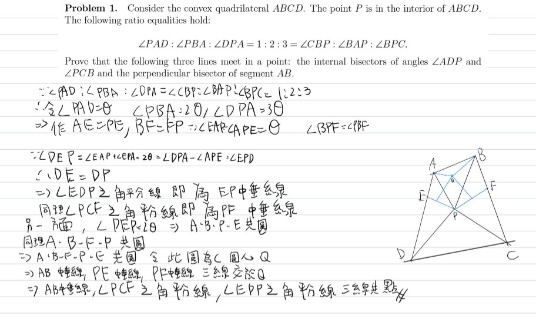 Problem 1. Consider the convex quadrilateral ABCD. The point P is in the interior of ABCD.
The following ratio equalities hold:
∠PAD : ∠PBA : ∠DPA = 1 : 2 : 3 = ∠CBP : ∠BAP : ∠BPC.
Prove that the following three lines meet in a point: the internal bisectors of angles ∠ADP and
∠PCB and the perpendicular bisector of segment AB.
∵∠PAD:∠PBA:∠DPA=∠CBP:∠BAP:∠BPC=1:2:3
∴令∠PAD=θ ∠PBA=2θ,∠DPA=3θ
⇒作AE=PE, BF=FP ∴∠EAP=∠APE=θ ∠BPF=∠PBF
∵∠DEP=∠EAP+∠EPA=2θ=∠DPA-∠APE=∠EPD
∴DE=DP
⇒∠EDP之角平分線即為EP中垂線
同理∠PCF之角平分線即為PF中垂線
另一方面,∠DEP=2θ ⇒ A·B·P·E共圓
同理A·B·F·P共圓
⇒A·B·F·P·E共圓 令此圓為C圓心Q
⇒AB中垂線,PE中垂線,PF中垂線三線交於Q
⇒AB中垂線,∠PCF之角平分線,∠EDP之角平分線三線共點
A
B
E
F
P
D
C